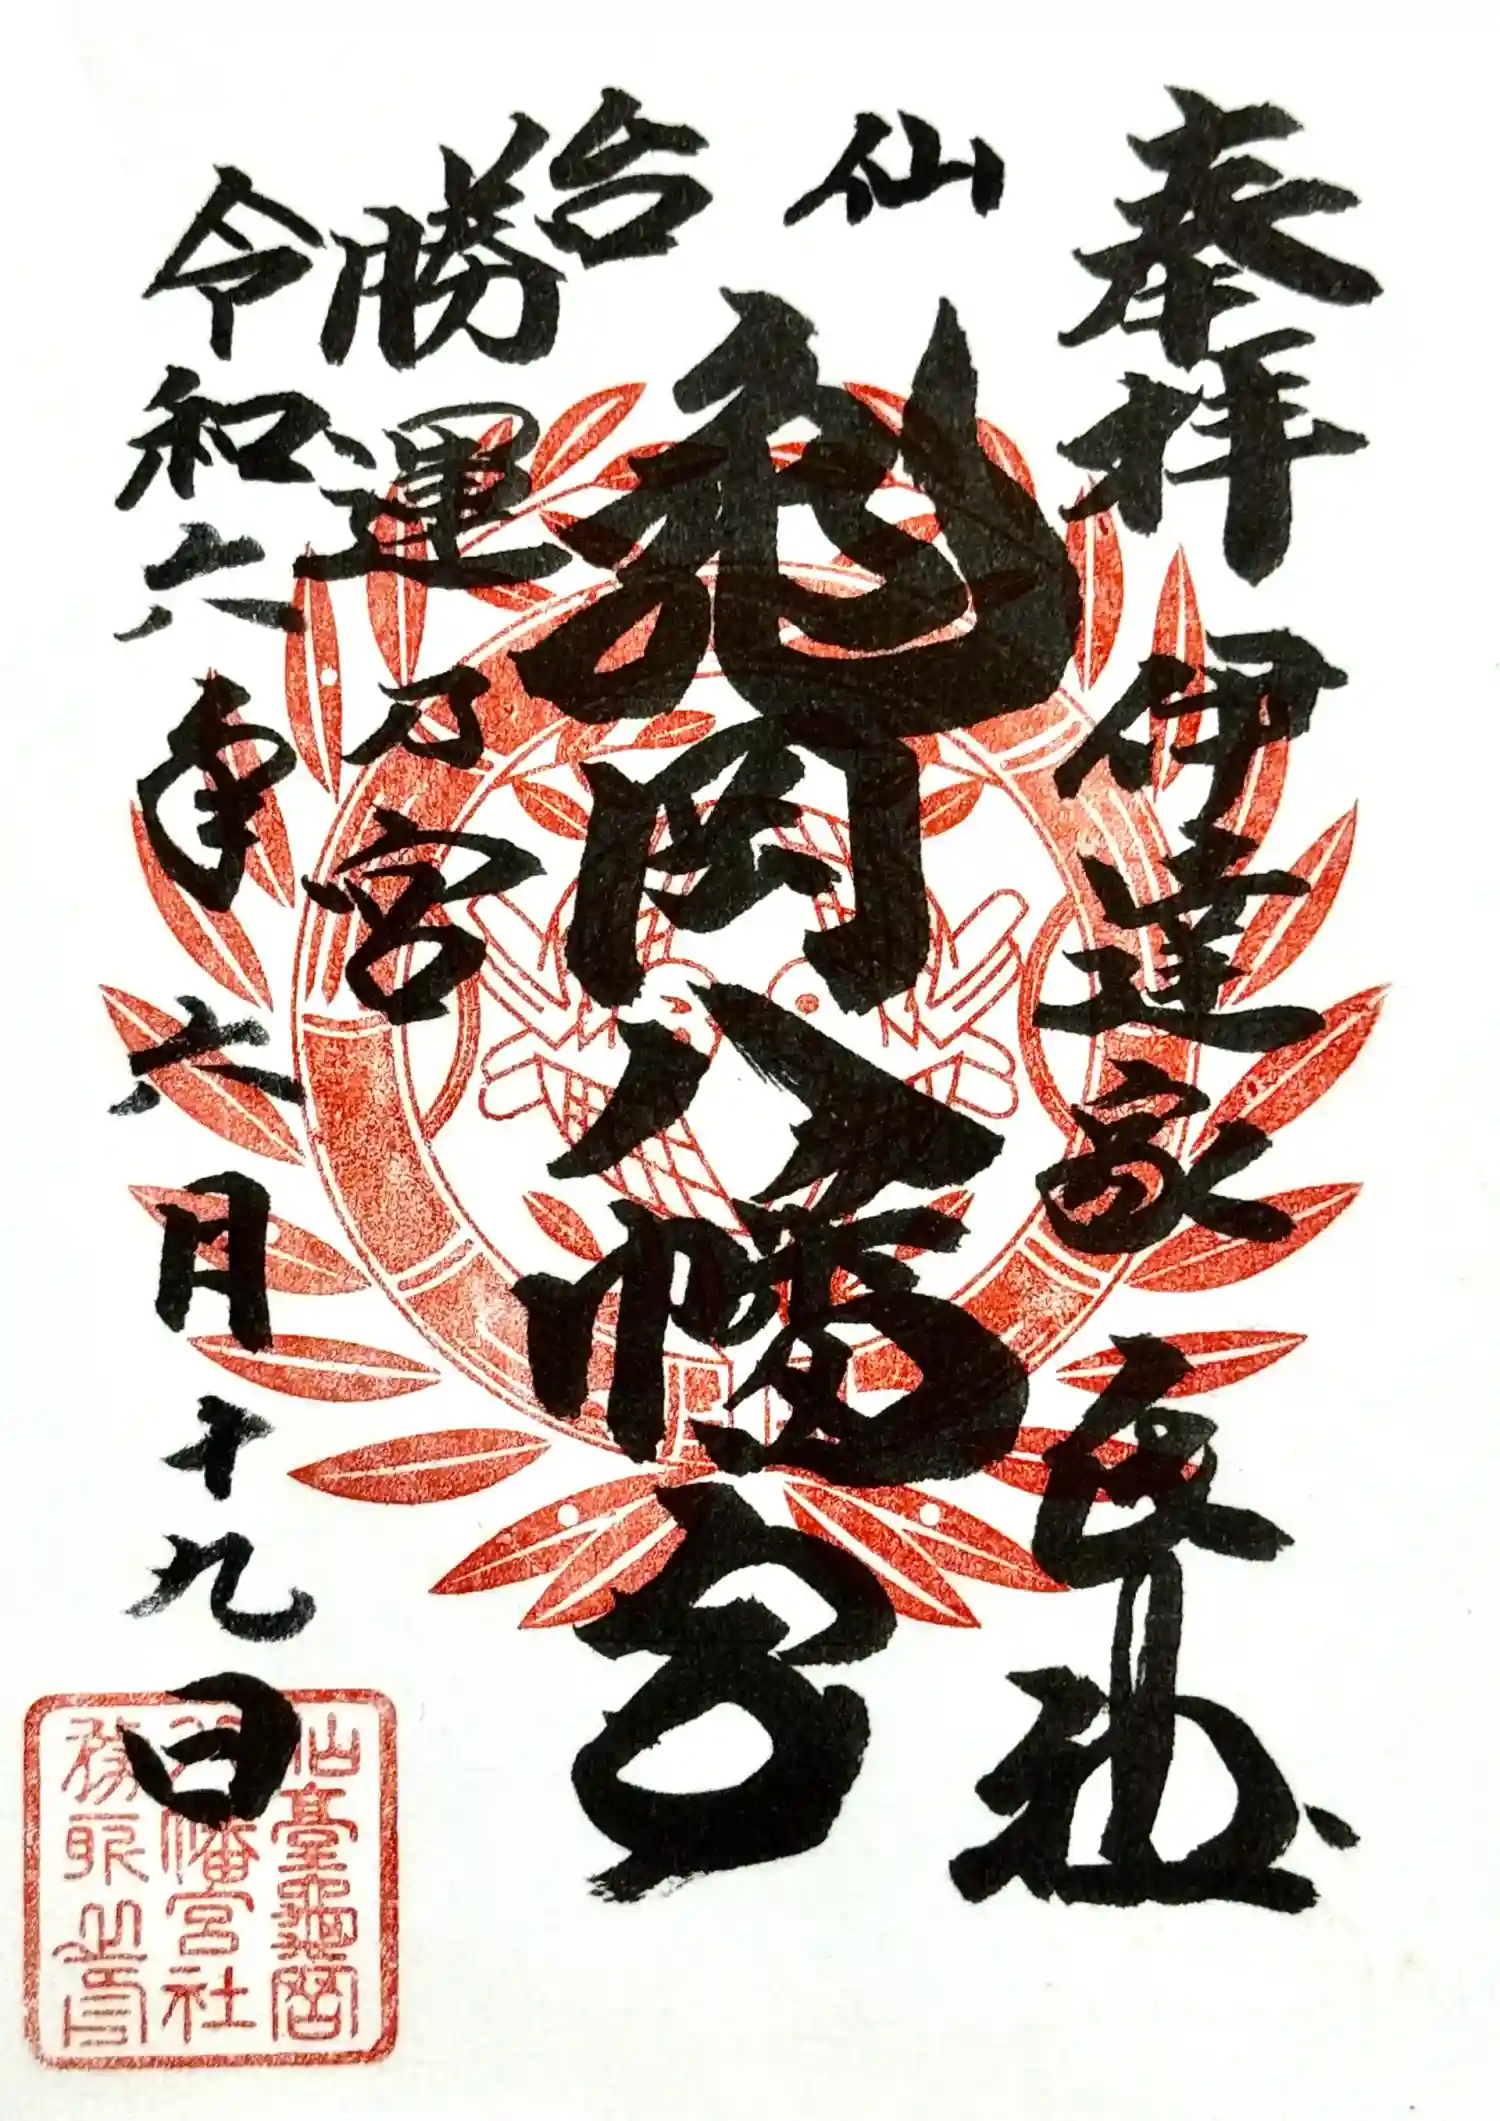 奉拝
伊達家
氏神社
仙台
亀岡八幡宮
勝運乃宮
令和六年六月十九日
仙臺龜岡
八幡宮社
務所之印